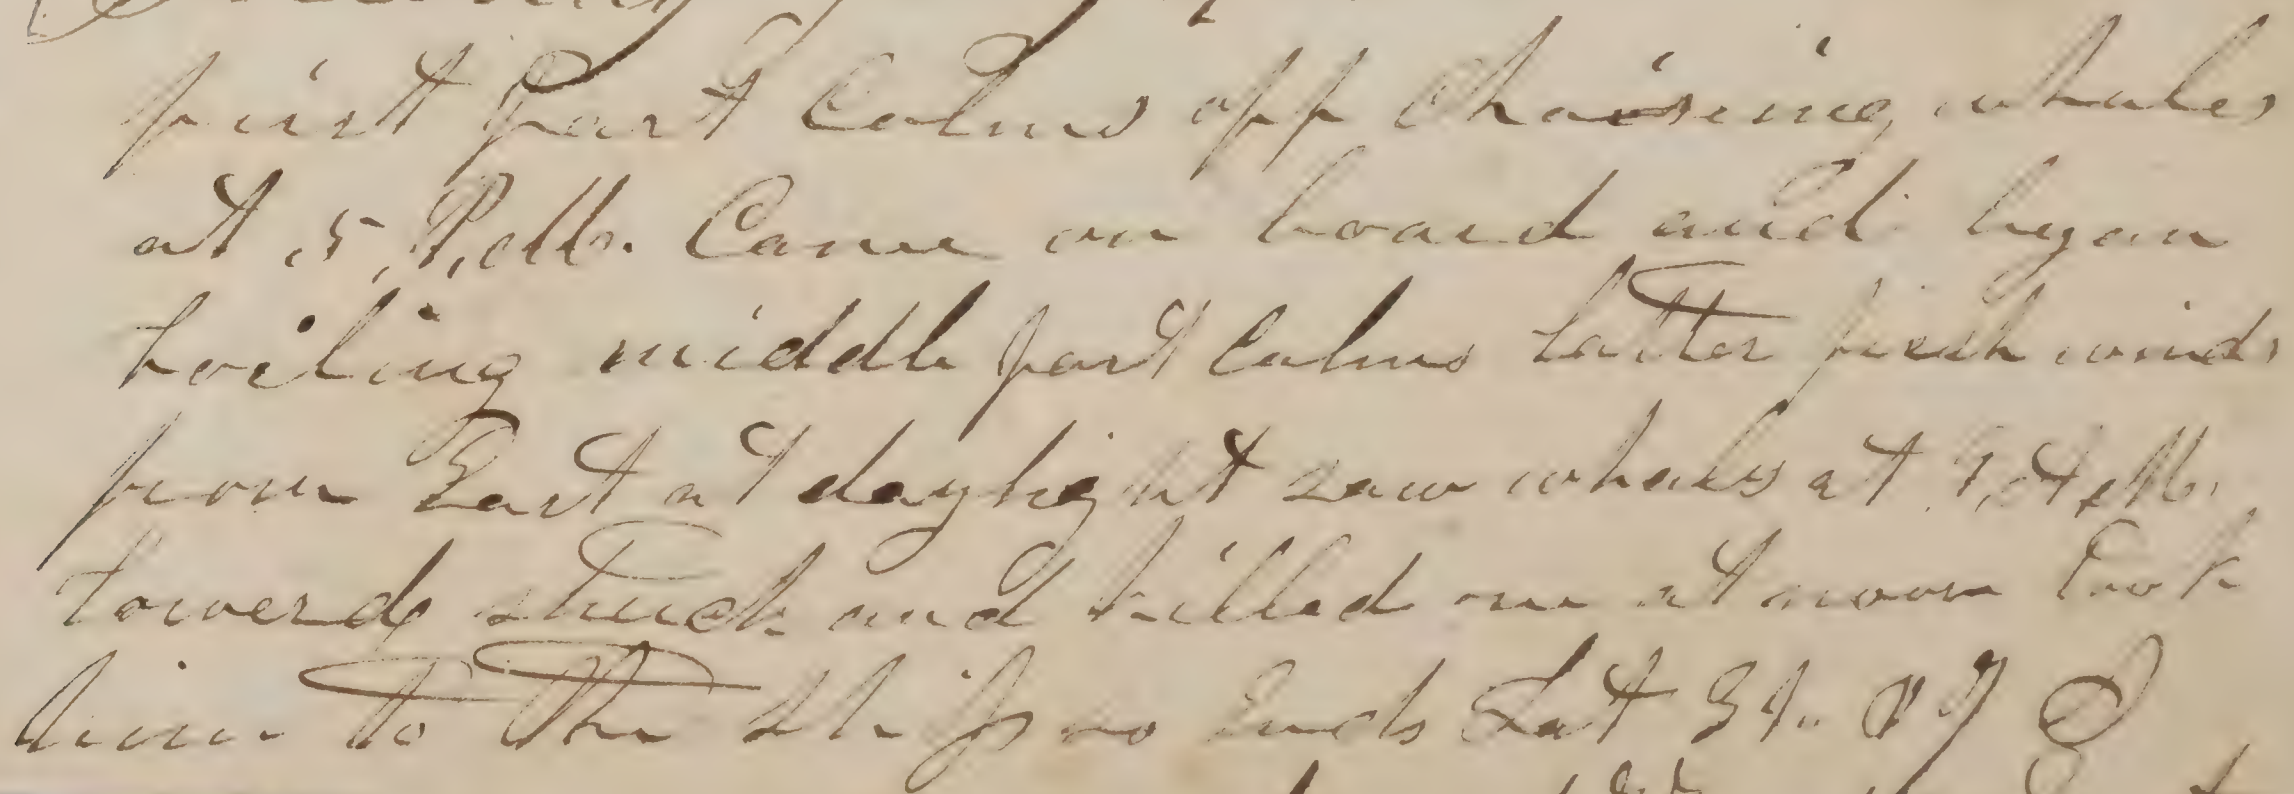 first Part Calms off Chaising whales
at 5, P, M. Came on board and began
boiling middle part Calms Latter fresh winds
from East at daylight saw whales at 9, A, M,
lowerd struck and killed one at noon Took
him to the Ship so Ends Lat 39.. 07 S